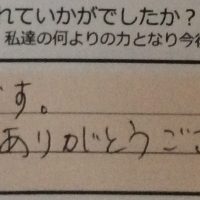 れていかがでしたか？
私達の何よりの力となり今後
です。
ありがとうござ